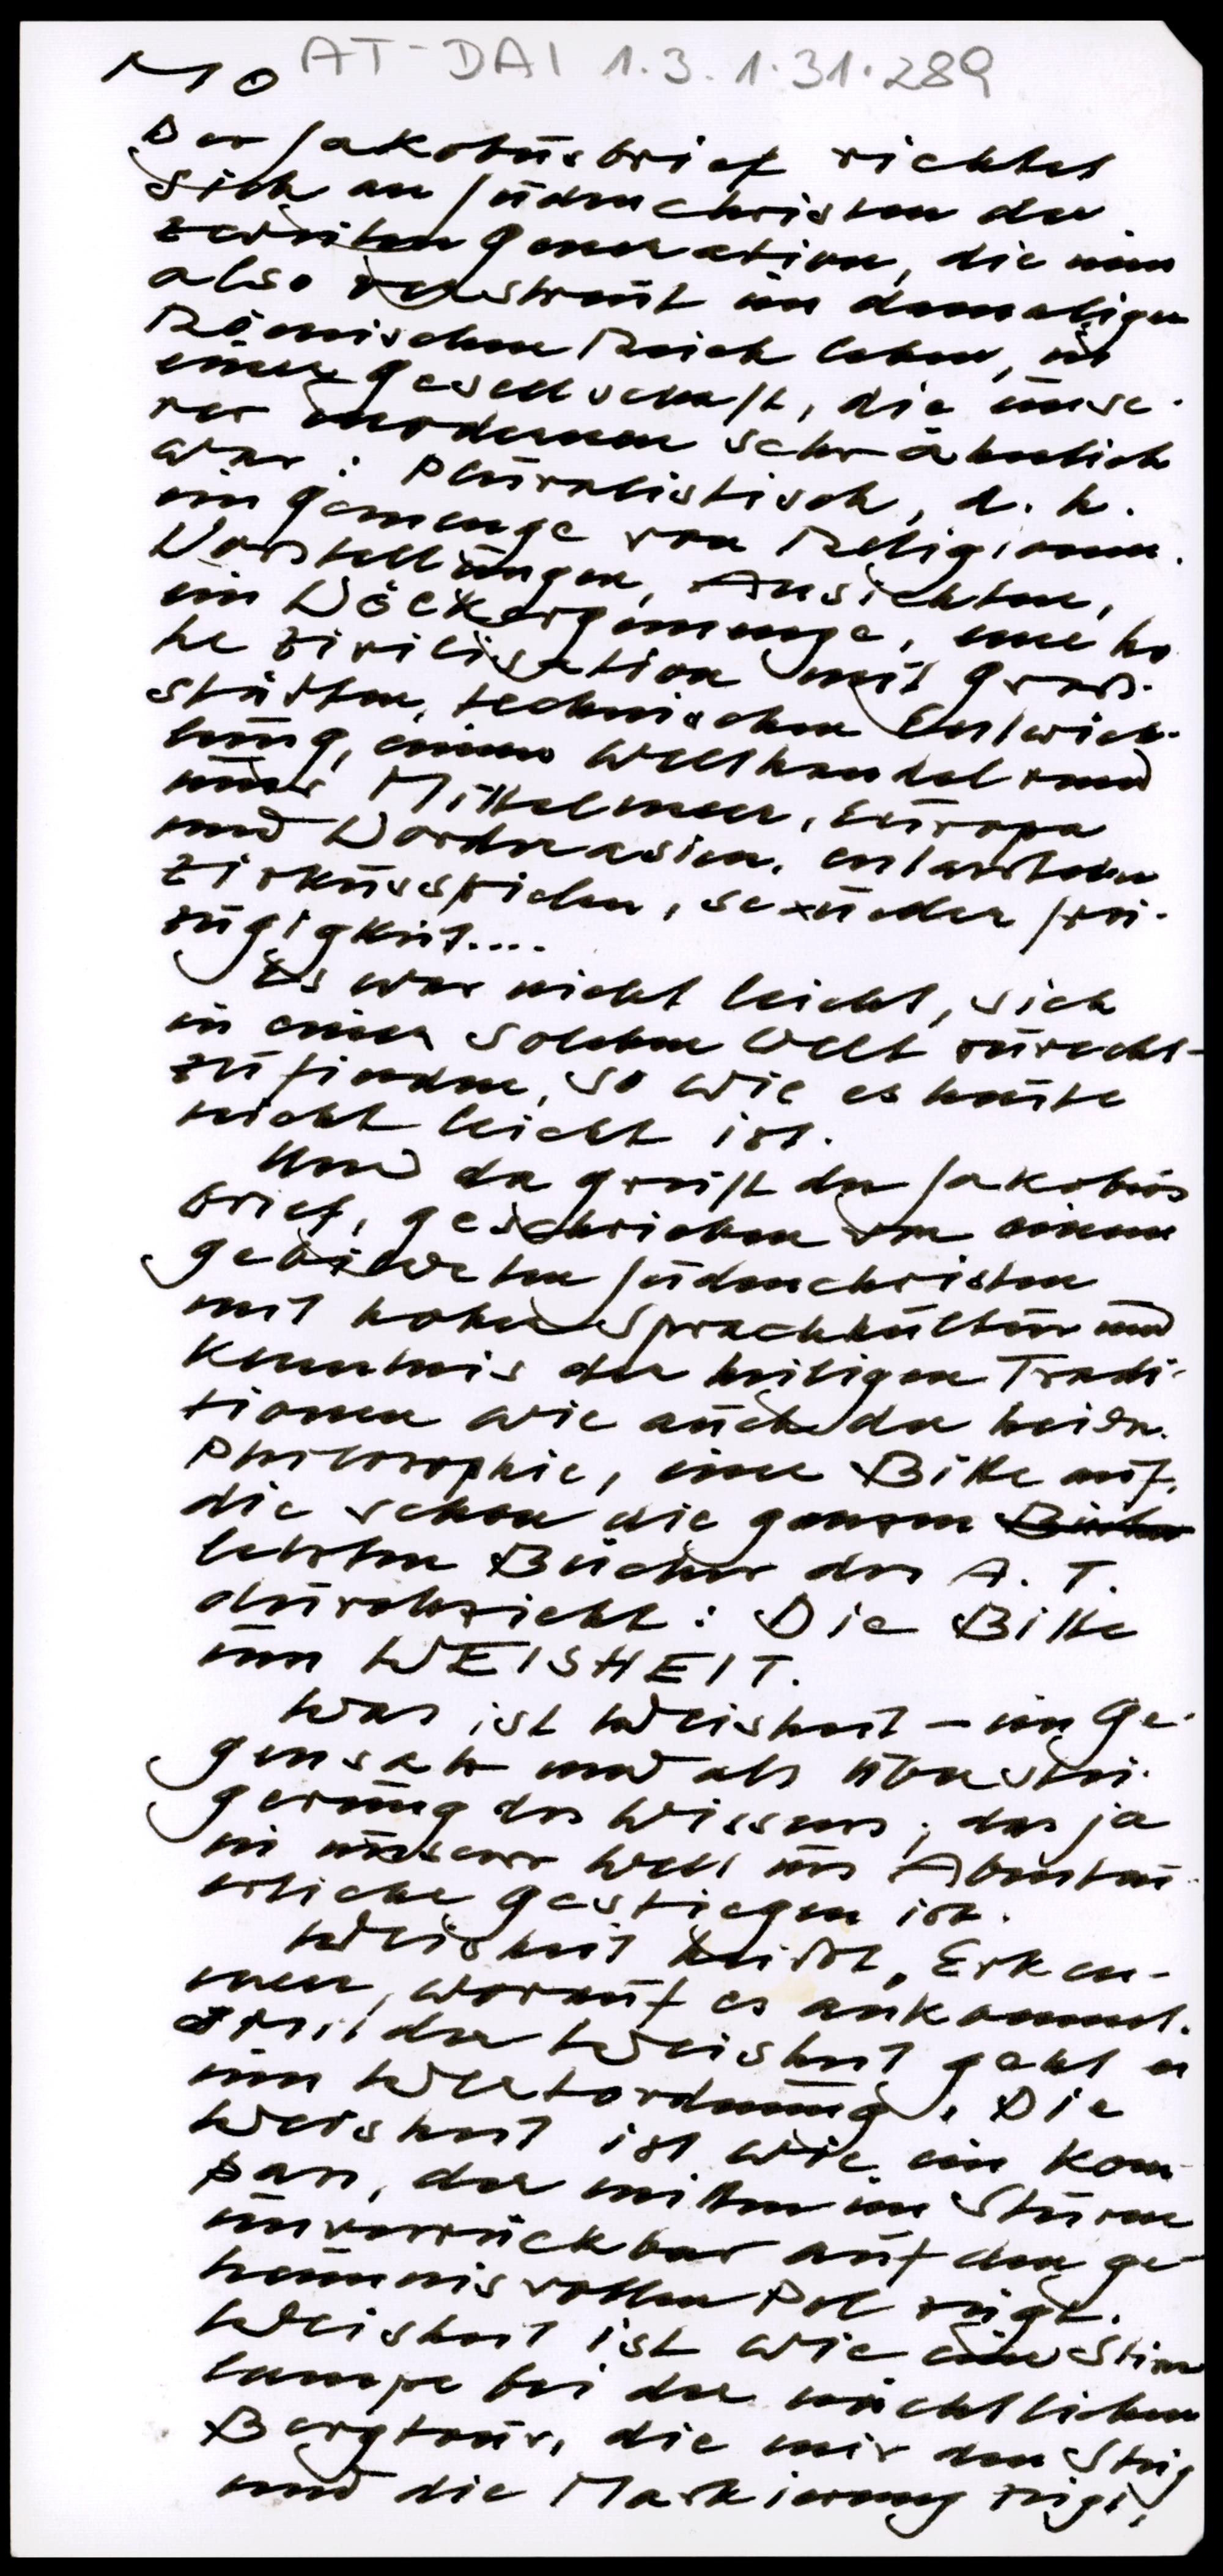 MO AT-DAI 1.3.1.31.289
Der Jakobusbrief richtet
sich an Judenchristen der
zweiten Generation, die nun
also verstreut im damaligen
Römischen Reich leben, in
einer Gesellschaft, die unse-
rer modernen sehr ähnlich
war: pluralistisch, d.h.
ein Gemenge von Religionen.
Vorstellungen, Ansichten,
ein Völkergemenge, eine ho
he Zivilisation mit Groß-
städten, technischen Entwick-
lung, einem Welthandel rund
ums Mittelmeer, Europa
und Vorderasien, entarteten
Zirkusspielen, sexueller Frei-
zügigkeit....
Es war nicht leicht, sich
in einer solchen Welt zurecht-
zufinden, so wie es heute
nicht leicht ist.
Und da greift der Jakobus
brief, geschrieben von einem
gebildeten Judenchristen
mit hoher Sprachkultur und
Kenntnis der heiligen Tradi-
tionen wie auch der heidn.
Philosophie, eine Bitte auf,
die schon die ganzen Bücher
letzten Bücher des A.T.
durchzieht: Die Bitte
um WEISHEIT.
Was ist Weisheit – im Ge-
gensatz und als Überstei-
gerung des Wissens, das ja
in unserer Welt ins Abenteu-
erliche gestiegen ist.
Weisheit heißt, Erken-
nen, worauf es ankommt.
der Weisheit geht es
um Wertordnung. Die
Weisheit ist wie ein Kom-
pass, der mitten im Sturm
unverrückbar auf den ge-
heimnisvollen Pol zeigt.
Weisheit ist wie eine Stirn
lampe bei der nächtlichen
Bergtour, die mir den Steig
und die Markierung zeigt,